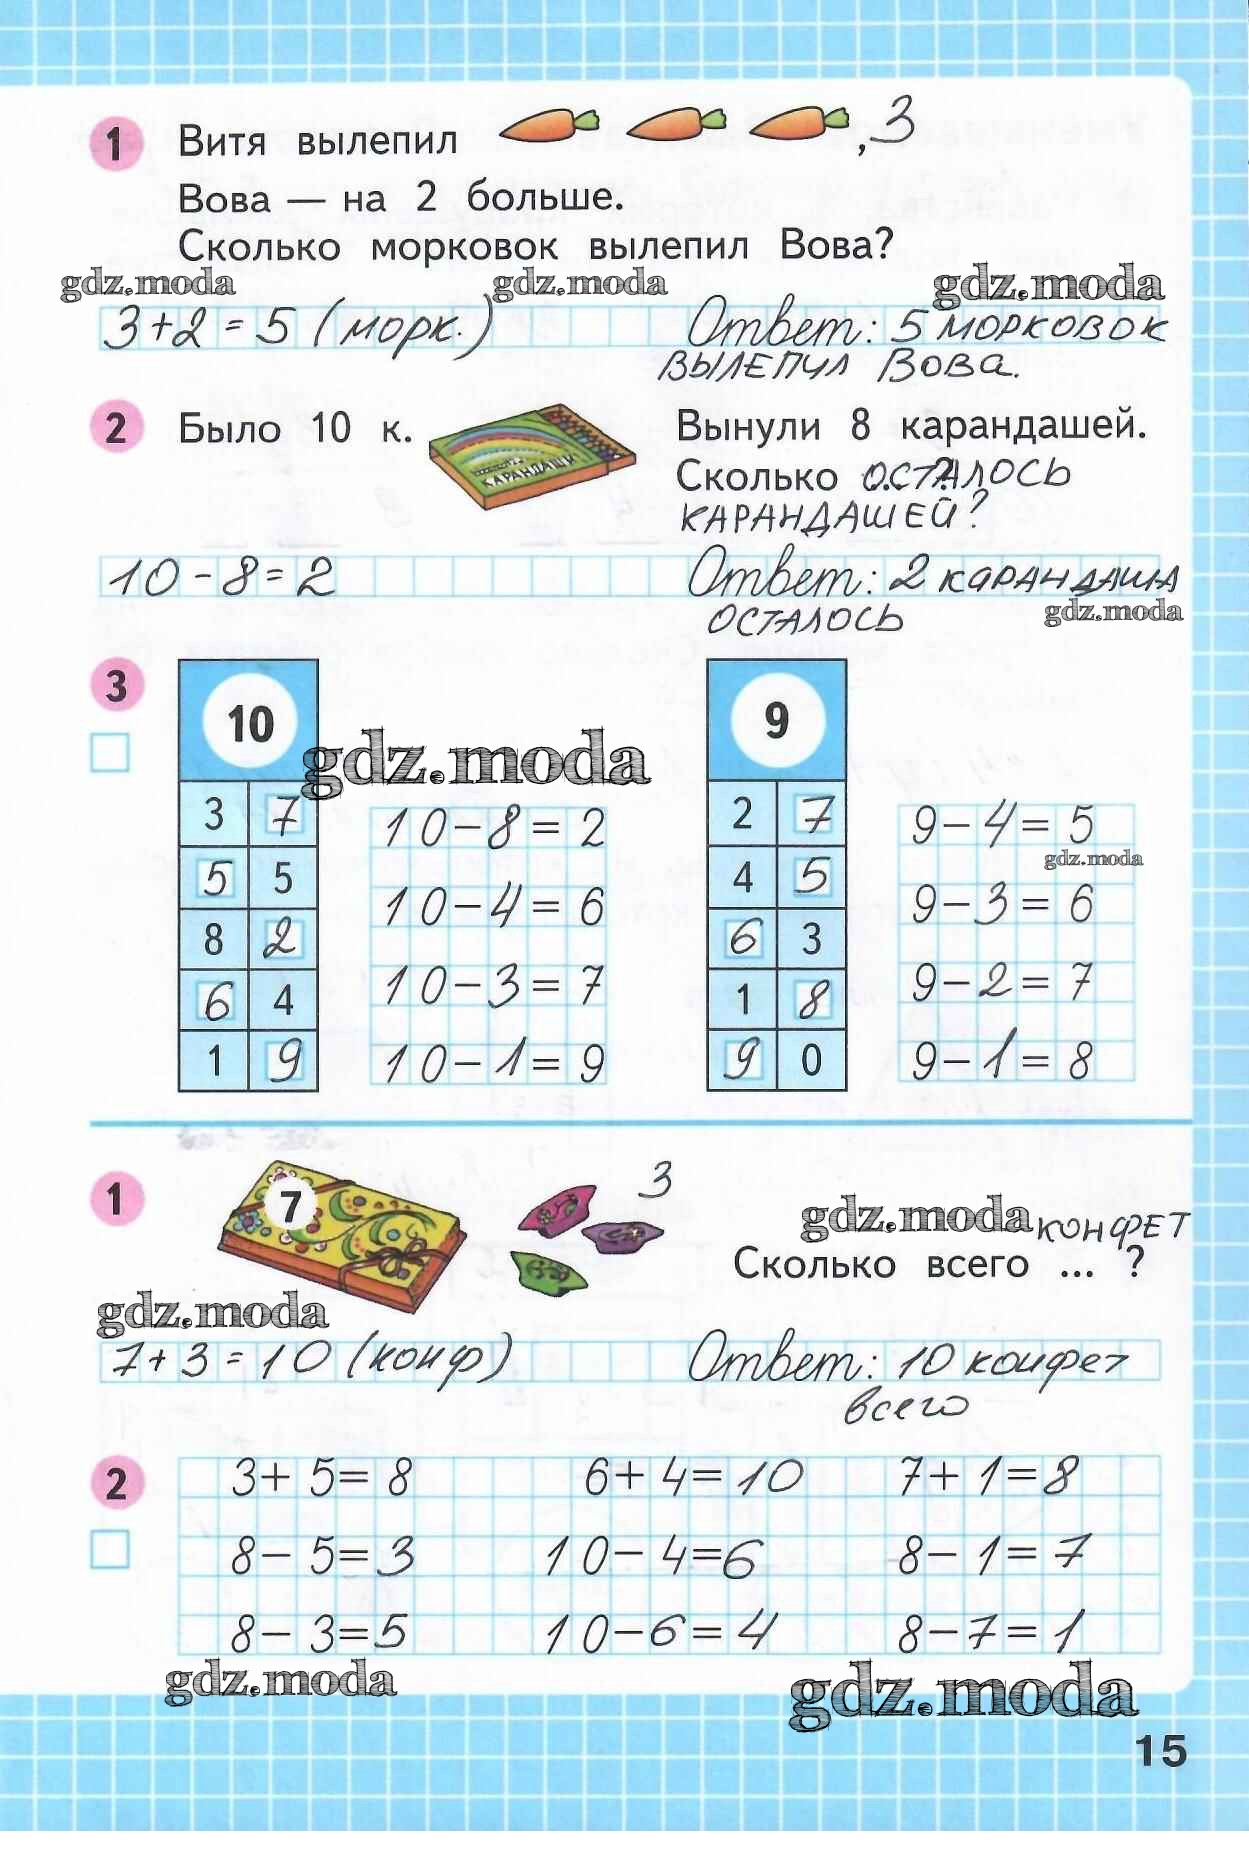 1 Витя вылепил , 3
Вова — на 2 больше.
Сколько морковок вылепил Вова?
gdz.moda gdz.moda gdz.moda
3+2=5 (морк.) Ответ: 5 морковок
вылепил Вова.
2 Было 10 к. КАРАНДАШИ Вынули 8 карандашей.
Сколько осталось ... ?
карандашей?
10-8=2 Ответ: 2 карандаша
gdz.moda
осталось
3 10 9
gdz.moda
3 7 10-8=2 2 7 9-4=5
gdz.moda
5 5 10-4=6 4 5 9-3=6
8 2 10-3=7 6 3 9-2=7
6 4 10-1=9 1 8 9-1=8
1 9 9 0
1 7 3
gdz.moda конфет
Сколько всего ... ?
gdz.moda
7+3=10 (конф) Ответ: 10 конфет
всего
2 3+5=8 6+4=10 7+1=8
8-5=3 10-4=6 8-1=7
8-3=5 10-6=4 8-7=1
gdz.moda gdz.moda
15